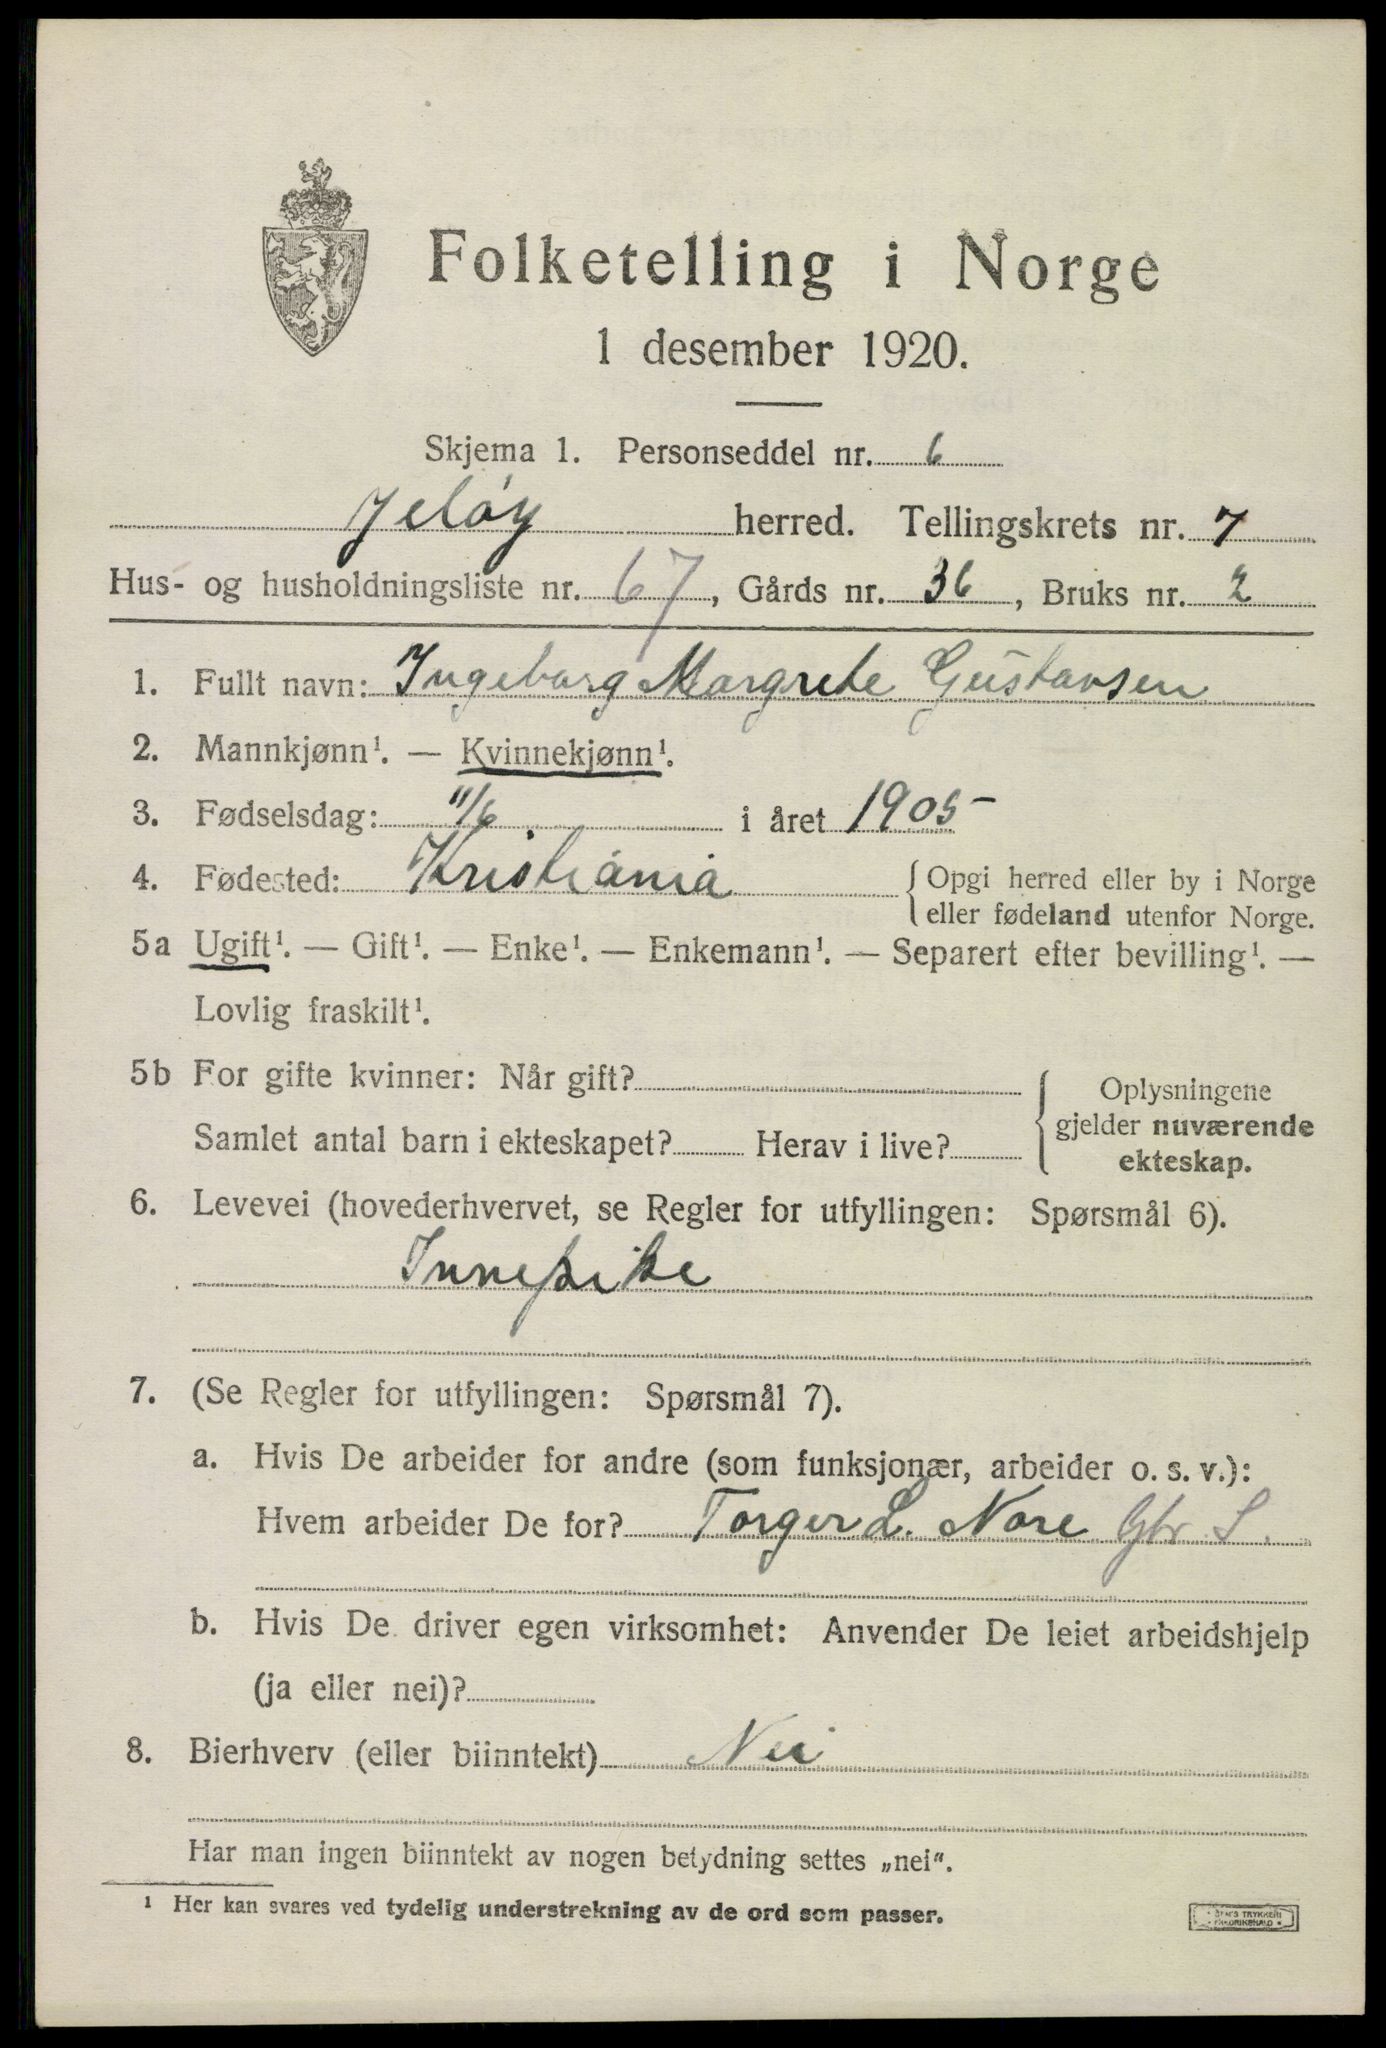 Folketelling i Norge
1 desember 1920.
Skjema 1. Personseddel nr. 6
Jeløy herred. Tellingskrets nr. 7
Hus- og husholdningsliste nr. 67, Gårds nr. 36, Bruks nr. 2
1. Fullt navn: Ingeborg Margrete Gustavsen
2. Mannkjønn¹. — Kvinnekjønn¹.
3. Fødselsdag: 11/6 i året 1905
4. Fødested: Kristiania
{ Opgi herred eller by i Norge
eller fødeland utenfor Norge.
5a Ugift¹. — Gift¹. — Enke¹. — Enkemann¹. — Separert efter bevilling¹. —
Lovlig fraskilt¹.
5b For gifte kvinner: Når gift?
Samlet antal barn i ekteskapet? Herav i live?
{ Oplysningene
gjelder nuværende
ekteskap.
6. Levevei (hovederhvervet, se Regler for utfyllingen: Spørsmål 6).
Innepike
7. (Se Regler for utfyllingen: Spørsmål 7).
a. Hvis De arbeider for andre (som funksjonær, arbeider o. s. v.):
Hvem arbeider De for? Torger L. Nore Gbr. S.
b. Hvis De driver egen virksomhet: Anvender De leiet arbeidshjelp
(ja eller nei)?
8. Bierhverv (eller biinntekt) Nei
Har man ingen biinntekt av nogen betydning settes „nei“.
¹ Her kan svares ved tydelig understrekning av de ord som passer.
TRYKKERI
FREDRIKSHALD